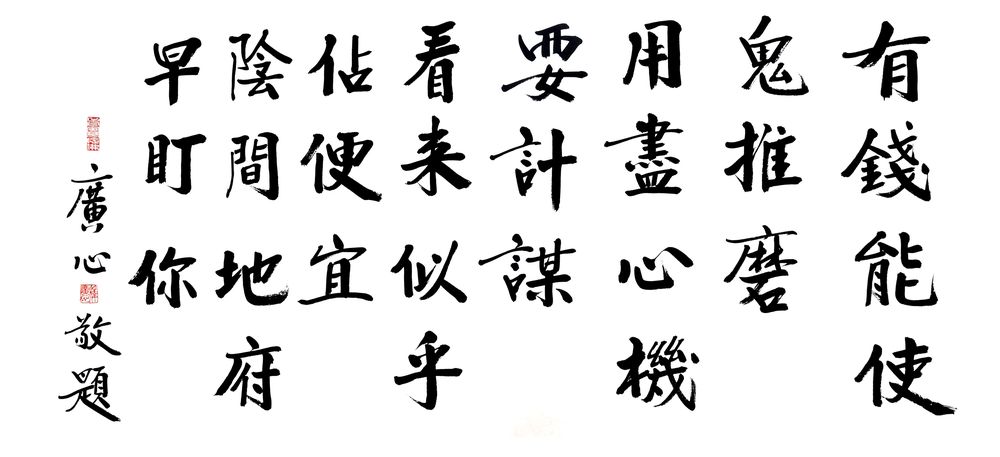 有錢能使
鬼推磨
用盡心機
耍計謀
看来似乎
佔便宜
陰間地府
早盯你
廣心敬題